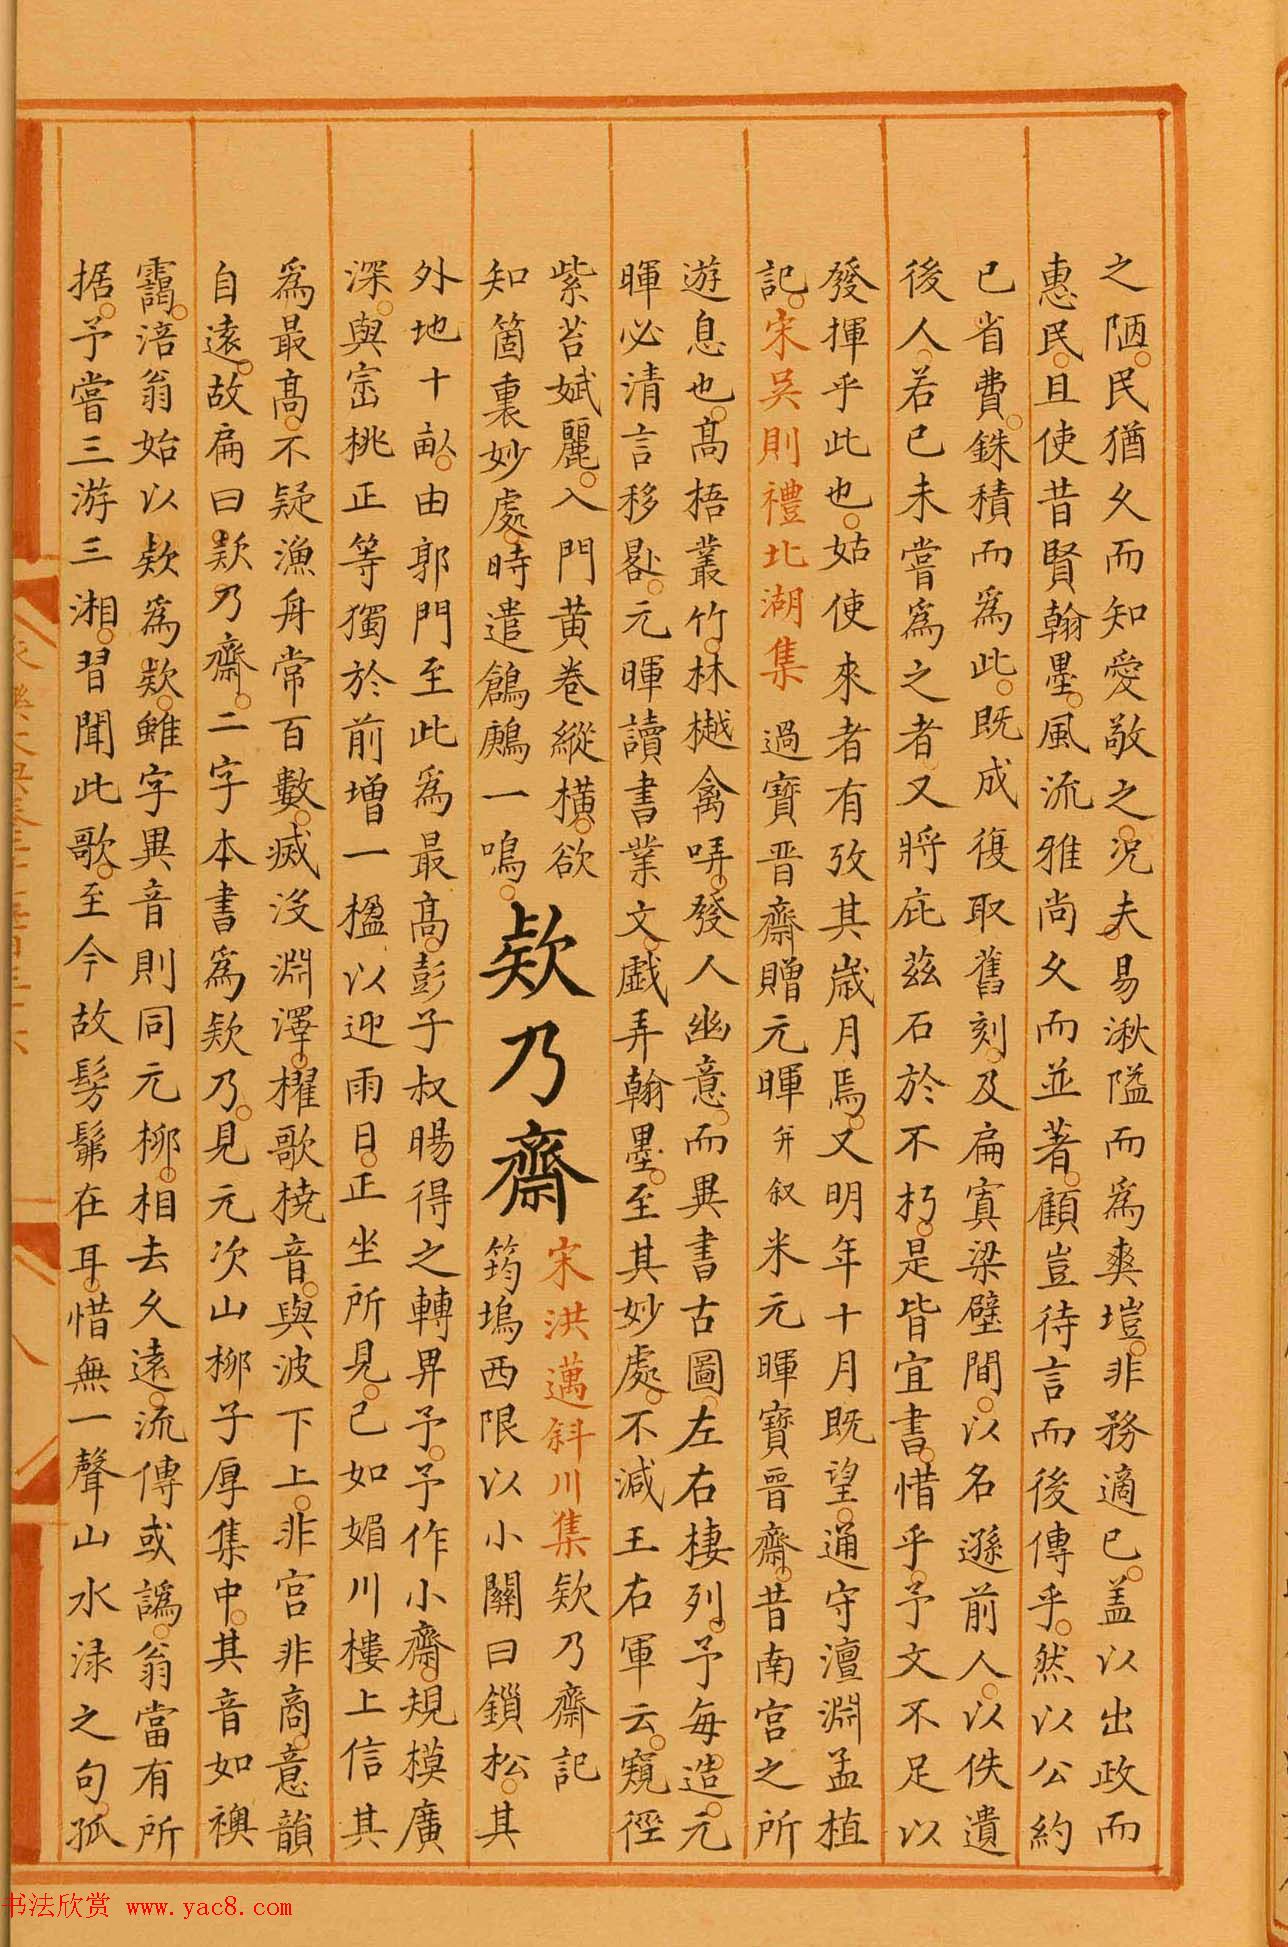 之陋民猶久而知愛敬之況夫易湫隘而爲爽塏非務適已盖以出政而
惠民且使昔賢翰墨風流雅尚久而並著顧豈待言而後傳乎然以公約
已省費銖積而爲此既成復取舊刻及扁寘梁壁間以名遜前人以佚遺
後人若已未嘗爲之者又將庇兹石於不朽是皆宜書惜乎予文不足以
發揮乎此也姑使來者有攷其歲月焉又明年十月既望通守澶淵孟植
記宋吳則禮北湖集 過寶晋齋贈元暉 并叙 米元暉寶晉齋昔南宮之所
遊息也高梧叢竹林樾禽哢發人幽意而異書古圖左右棲列予每造元
暉必清言移晷元暉讀書業文戯弄翰墨至其妙處不減王右軍云窺徑
紫苔娬麗入門黄卷縱横欲
知箇裏妙處時遣鶬鶊一鳴
欵乃齋
宋洪邁斜川集 欵乃齋記
筠塢西限以小關曰鎖松其
外地十畝由郭門至此爲最高彭子叔暘得之轉畀予予作小齋規模廣
深與窑桃正等獨於前增一楹以迎雨日正坐所見已如媚川樓上信其
爲最高不疑漁舟常百數滅沒淵澤櫂歌橈音與波下上非宮非商意韻
自遠故扁曰欵乃齋二字本書爲欵乃見元次山栁子厚集中其音如襖
靄涪翁始以欵爲欵雖字異音則同元栁相去久遠流傳或譌翁當有所
据予嘗三游三湘習聞此歌至今故髣髴在耳惜無一聲山水渌之句孤
八
书法欣赏 www.yac8.com